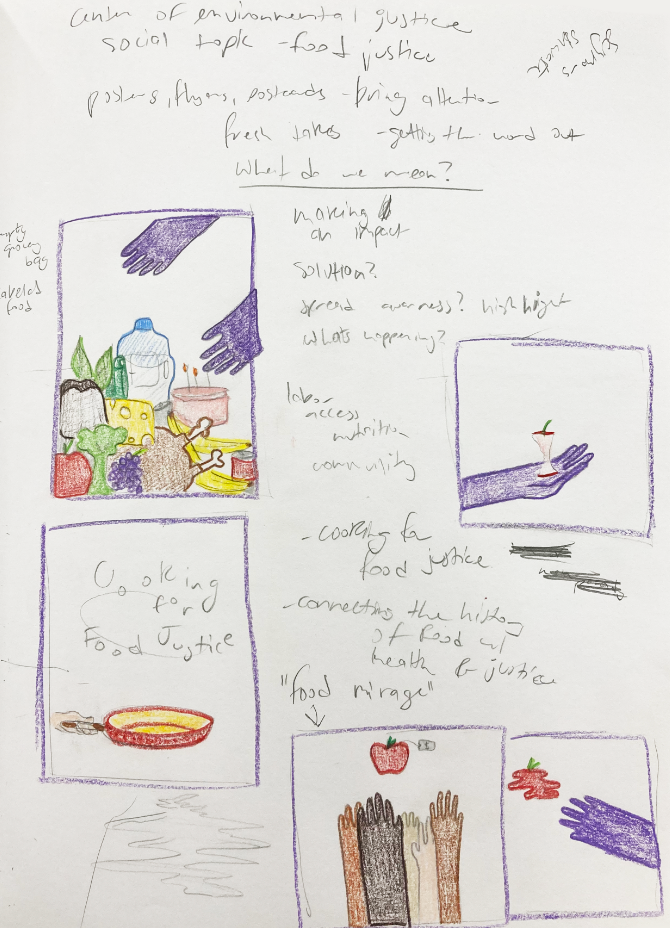 center of environmental justice
social topik - food justice
posters, flyers, postcards - bring attention
fresh takes - getting the word out
What do we mean?
making
an impact
empty
grocery
bag
labeled
food
solution?
spread awareness? highlight
whats happening?
labor
access
nutrition
community
- cooking for
food justice
Cooking
for
Food Justice
- connecting the history
of food w/
health & justice
"food mirage"